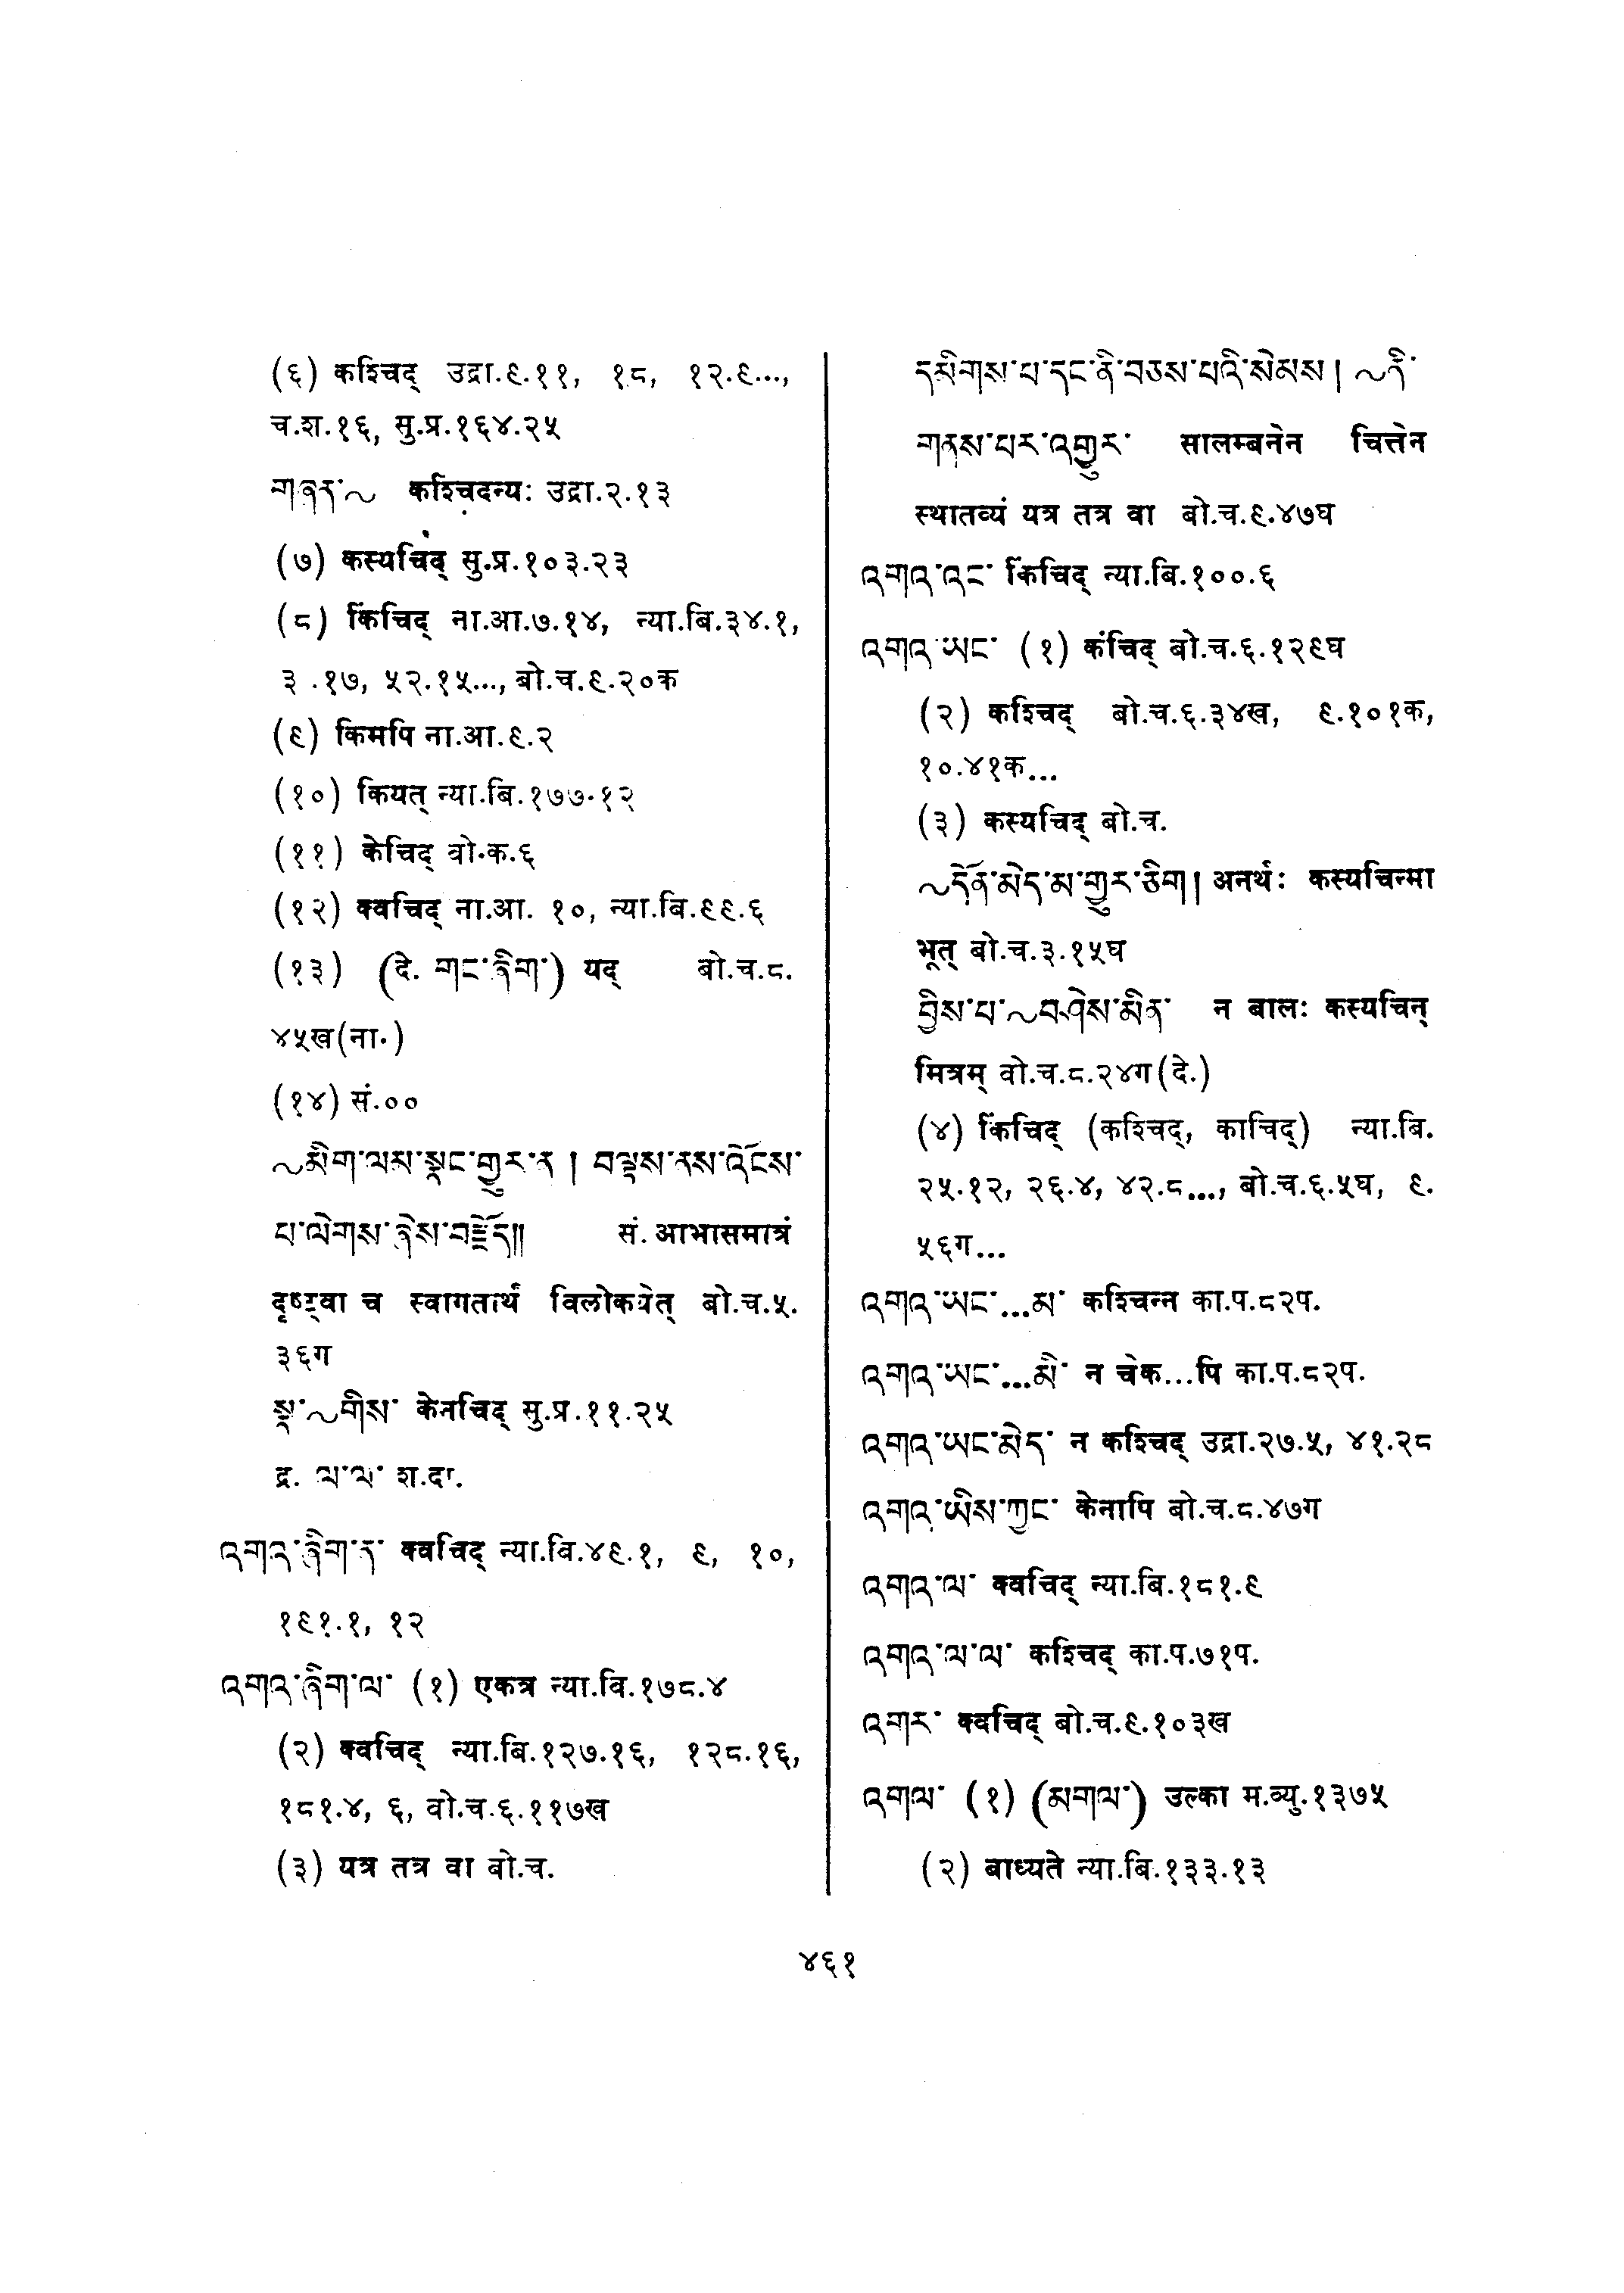 (६) कश्चिद् उद्रा.९.११, १८, १२.९...,
च.श.१६, सु.प्र.१६४.२५
གཞན་~ कश्चिदन्यः उद्रा.२.१३
(७) कस्यचिद् सु.प्र.१०३.२३
(८) किंचिद् ना.आ.७.१४, न्या.बि.३४.१,
३ .१७, ५२.१५..., बो.च.९.२०क
(९) किमपि ना.आ.९.२
(१०) कियत् न्या.बि.१७७.१२
(११) केचिद् वो.क.६
(१२) क्वचिद् ना.आ. १०, न्या.बि.९९.६
(१३) (दे. གང་ཞིག་) यद् बो.च.८.
४५ख(ना.)
(१४) सं.००
~མིག་ལས་སྣང་གྱུར་ན། བལྟས་ནས་འོངས་
པ་ལེགས་ཞེས་བརྗོད།། सं. आभासमात्रं
दृष्ट्वा च स्वागतार्थं विलोकयेत् बो.च.५.
३६ग
སྣ་~གིས་ केनचिद् सु.प्र.११.२५
द्र. ལ་ལ་ श.दा.
འགའ་ཞིག་ན་ क्वचिद् न्या.बि.४९.१, ९, १०,
१९१.१, १२
འགའ་ཞིག་ལ་ (१) एकत्र न्या.वि.१७८.४
(२) क्वचिद् न्या.बि.१२७.१६, १२८.१६,
१८१.४, ६, वो.च.६.११७ख
(३) यत्र तत्र वा बो.च.
དམིགས་པ་དང་ནི་བཅས་པའི་སེམས། ~ནི་
གནས་པར་འགྱུར་ सालम्बनेन चित्तेन
स्थातव्यं यत्र तत्र वा बो.च.९.४७घ
འགའ་འང་ किंचिद् न्या.बि.१००.६
འགའ་ཡང་ (१) कंचिद् बो.च.६.१२९घ
(२) कश्चिद् बो.च.६.३४ख, ९.१०१क,
१०.४१क...
(३) कस्यचिद् बो.च.
~དོན་མེད་མ་གྱུར་ཅིག། अनर्थः कस्यचिन्मा
भूत् बो.च.३.१५घ
བྱིས་པ་~བཤེས་མིན་ न बालः कस्यचिन्
मित्रम् वो.च.८.२४ग(दे.)
(४) किंचिद् (कश्चिद्, काचिद्) न्या.बि.
२५.१२, २६.४, ४२.८..., बो.च.६.५घ, ९.
५६ग...
འགའ་ཡང་...མ་ कश्चिन्न का.प.८२प.
འགའ་ཡང་...མི་ न चेक...पि का.प.८२प.
འགའ་ཡང་མེད་ न कश्चिद् उद्रा.२७.५, ४१.२८
འགའ་ཡིས་ཀྱང་ केनापि बो.च.८.४७ग
འགའ་ལ་ क्वचिद् न्या.बि.१८१.९
འགའ་ལ་ལ་ कश्चिद् का.प.७१प.
འགར་ क्वचिद् बो.च.९.१०३ख
འགལ་ (१) (མགལ་) उल्का म.व्यु.१३७५
(२) बाध्यते न्या.बि.१३३.१३
४६१